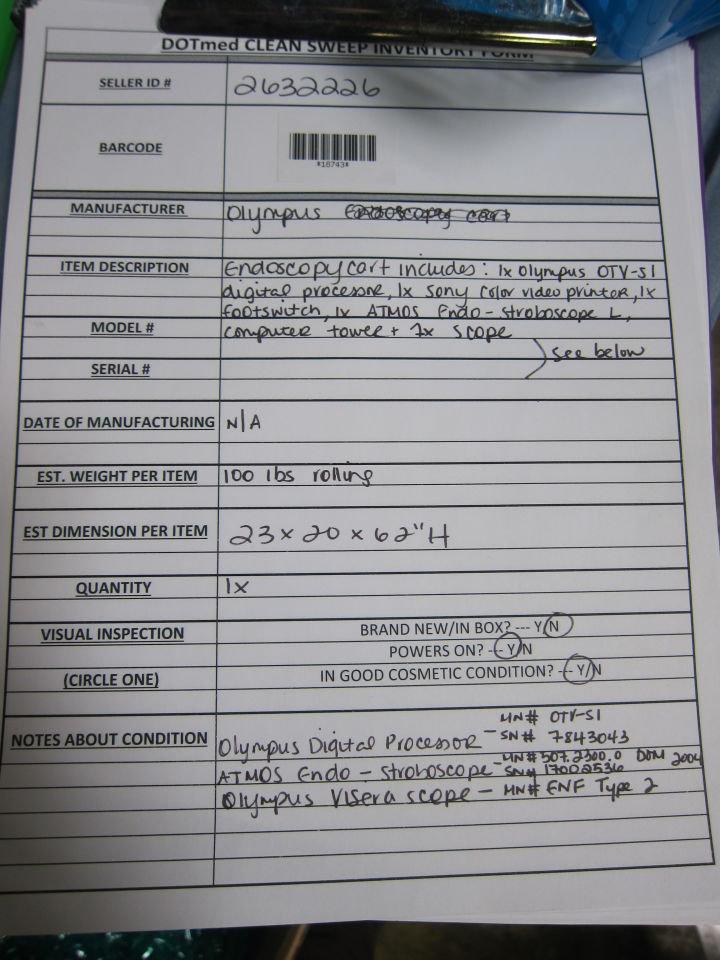 DOTmed CLEAN SWEEP INVENTORY FORM
SELLER ID # 2632226
BARCODE
*18743*
MANUFACTURER Olympus Endoscopy cart
ITEM DESCRIPTION Endoscopy cart includes: 1x Olympus OTV-S1
digital processor, 1x Sony color video printer, 1x
footswitch, 1x ATMOS Endo-Stroboscope L,
MODEL # computer tower + 1x scope
see below
SERIAL #
DATE OF MANUFACTURING N/A
EST. WEIGHT PER ITEM 100 lbs rolling
EST DIMENSION PER ITEM 23 x 20 x 62"H
QUANTITY 1x
VISUAL INSPECTION BRAND NEW/IN BOX? --- Y/N
POWERS ON? --- Y/N
(CIRCLE ONE) IN GOOD COSMETIC CONDITION? --- Y/N
MN# OTV-S1
NOTES ABOUT CONDITION Olympus Digital Processor - SN# 7843043
- MN# 507.2300.0 DOM 2004
ATMOS Endo-Stroboscope SN# 17002536
Olympus Visera scope - MN# ENF Type 2